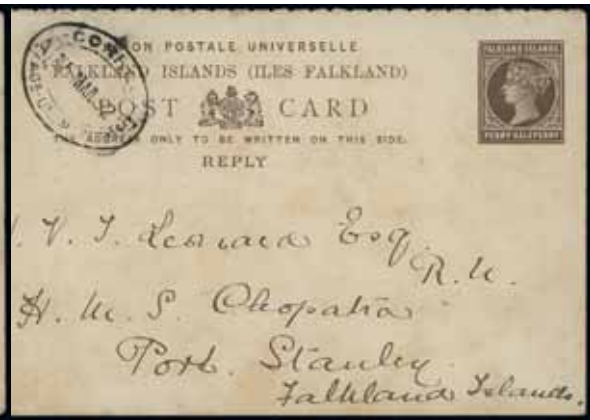 ON POSTALE UNIVERSELLE
FALKLAND ISLANDS (ILES FALKLAND)
POST CARD
ADDRESS ONLY TO BE WRITTEN ON THIS SIDE.
REPLY
FALKLAND ISLANDS
PENNY HALFPENNY
CORR
MAR
V. J. Leonard Esq.
R. N.
H. M. S. Cleopatra
Port. Stanley.
Falkland Islands.